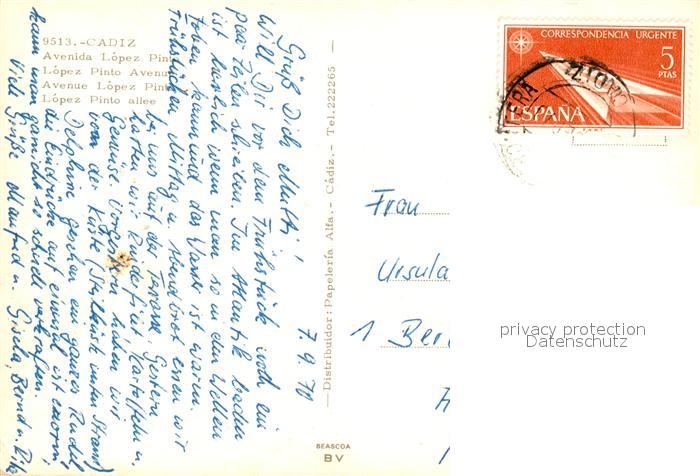 9513.-CADIZ
Avenida López Pinto
López Pinto Avenue
Avenue López Pinto
López Pinto allee
7.9.70
Grüß Dich Mutti!
Will Dir vor dem Frühstück noch ein
paar Zeilen schreiben. Im Atlantik baden
ist herrlich wenn man so in den Wellen
toben kann und das Wasser ist warm.
Frühstücken Mittag u. Abendbrot essen wir
bei uns auf der Terrasse. Gestern
hatten wir Rinderfilet Kartoffeln u.
Gemüse. Vorgestern haben wir
von der Küste (Steilküste unten Strand)
Delphine gesehen ein ganzes Rudel,
die Eindrücke auf einmal ist enorm,
kann man garnicht so schnell verkraften.
Viele Grüße Manfred u. Gisela, Bernd u.
Distribuidor: Papelería Alfa.- Cádiz.- Tel. 222265
BEASCOA
BV
CORRESPONDENCIA URGENTE
5
PTAS
ESPAÑA
Frau
Ursula
1 Ber
privacy protection
Datenschutz